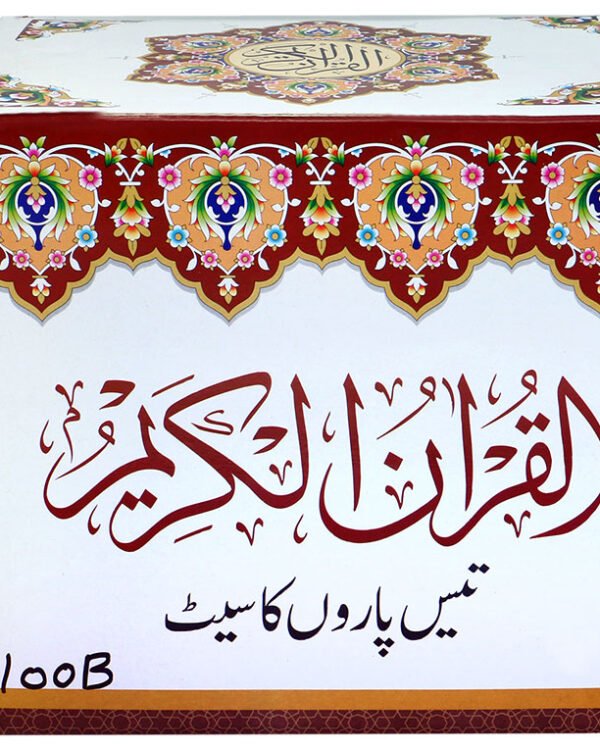 القرآن الكريم
القرآن الكريم
تیس پاروں کا سیٹ
100B